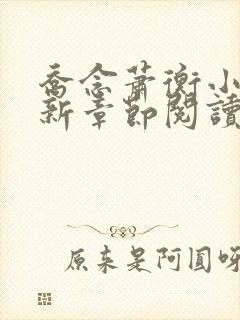 喬念蕭衡小
新章節閱讀
原来是阿圓呀